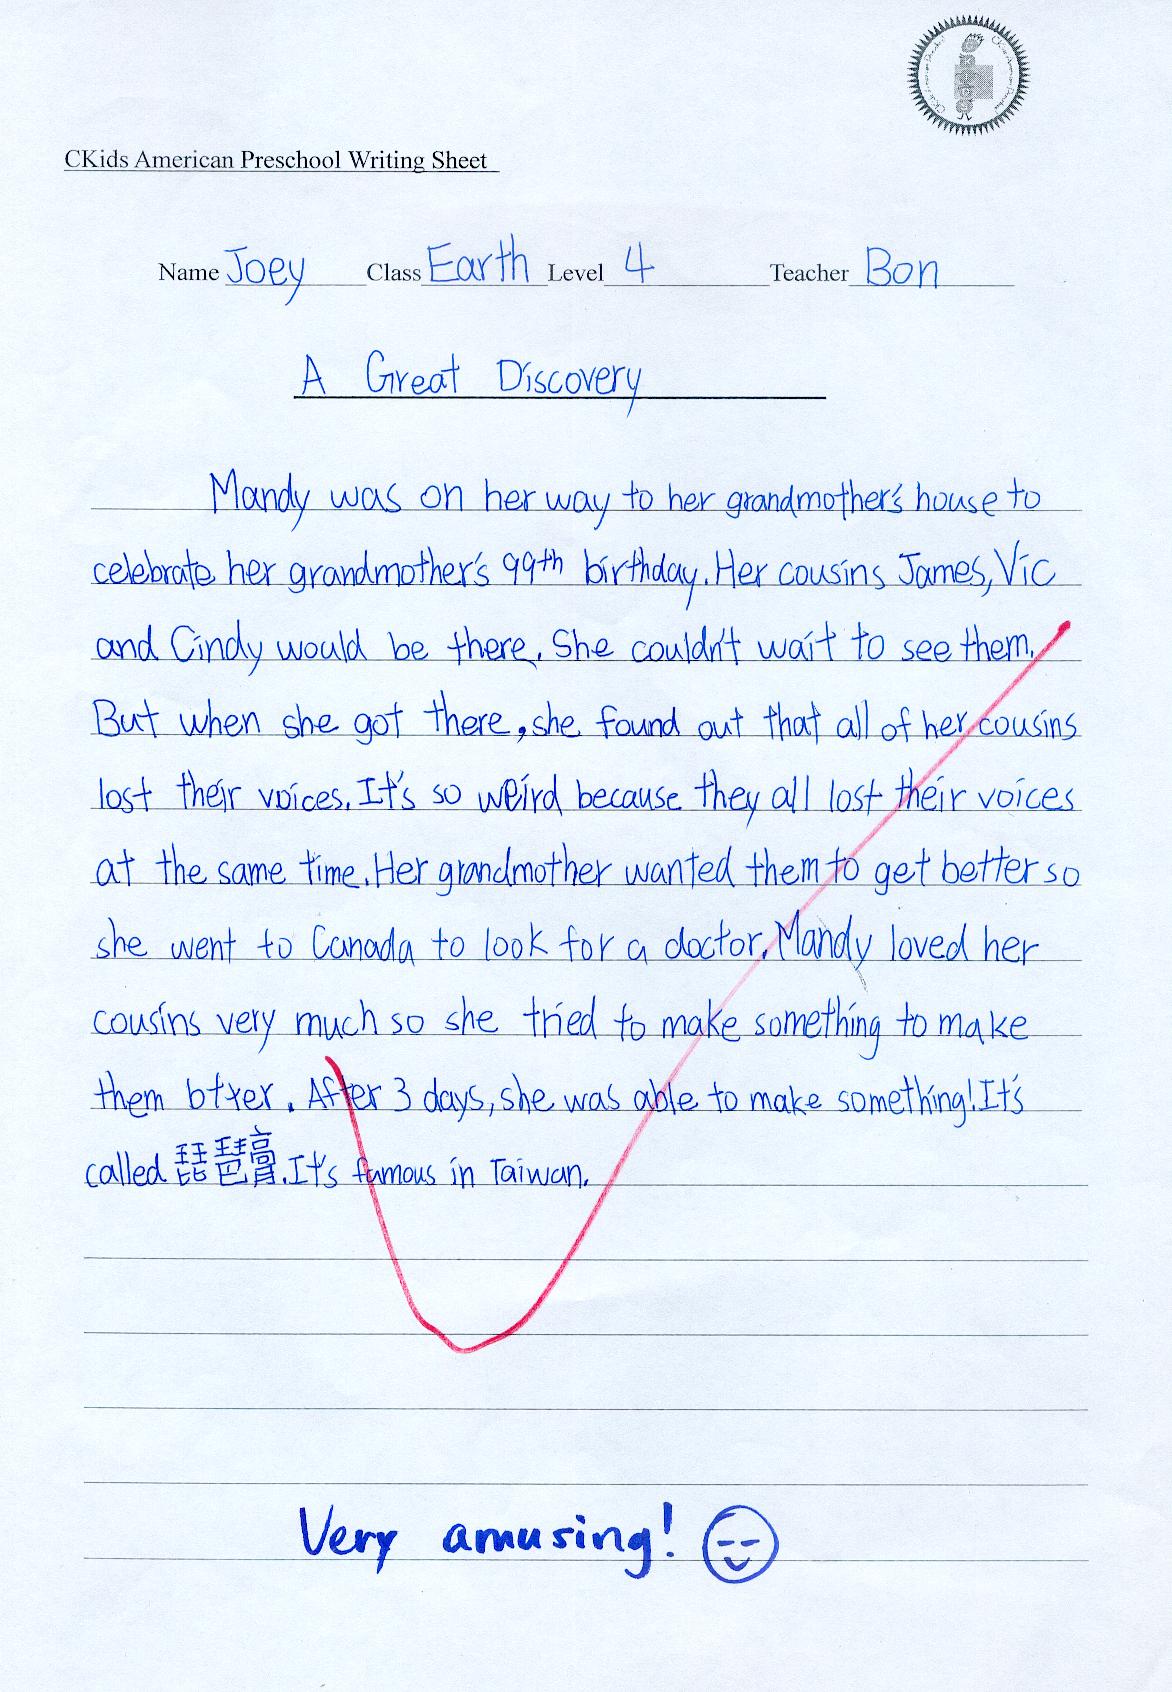 CKids American Preschool Writing Sheet
Name Joey Class Earth Level 4 Teacher Bon
A Great Discovery
Mandy was on her way to her grandmother's house to
celebrate her grandmother's 99th birthday. Her cousins James, Vic
and Cindy would be there. She couldn't wait to see them.
But when she got there, she found out that all of her cousins
lost their voices. It's so weird because they all lost their voices
at the same time. Her grandmother wanted them to get better so
she went to Canada to look for a doctor. Mandy loved her
cousins very much so she tried to make something to make
them btter. After 3 days, she was able to make something! It's
called 琵琶膏. It's famous in Taiwan.
Very amusing!